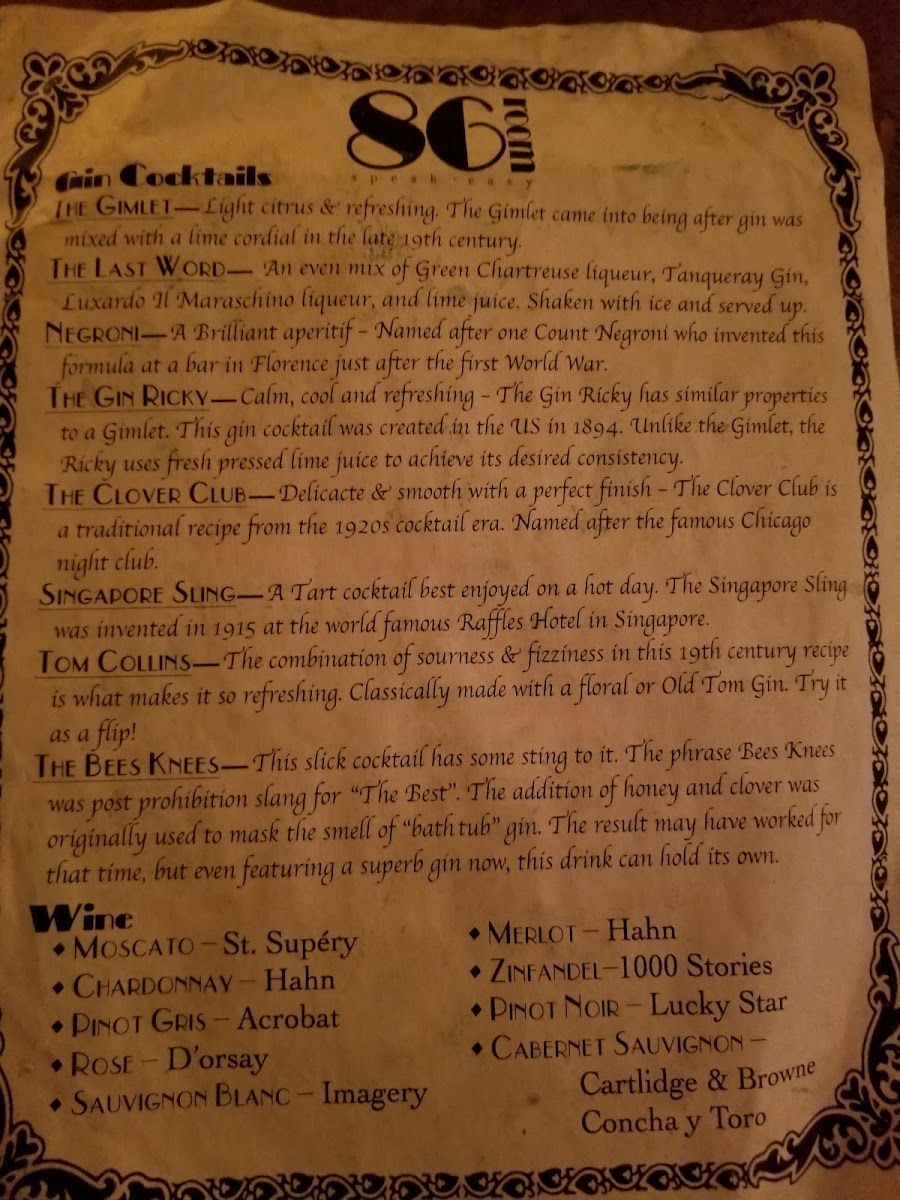 86 room
speak·easy
Gin Cocktails
The Gimlet—Light citrus & refreshing. The Gimlet came into being after gin was
mixed with a lime cordial in the late 19th century.
The Last Word— An even mix of Green Chartreuse liqueur, Tanqueray Gin,
Luxardo Il Maraschino liqueur, and lime juice. Shaken with ice and served up.
Negroni—A Brilliant aperitif - Named after one Count Negroni who invented this
formula at a bar in Florence just after the first World War.
The Gin Ricky—Calm, cool and refreshing - The Gin Ricky has similar properties
to a Gimlet. This gin cocktail was created in the US in 1894. Unlike the Gimlet, the
Ricky uses fresh pressed lime juice to achieve its desired consistency.
The Clover Club—Delicacte & smooth with a perfect finish - The Clover Club is
a traditional recipe from the 1920s cocktail era. Named after the famous Chicago
night club.
Singapore Sling—A Tart cocktail best enjoyed on a hot day. The Singapore Sling
was invented in 1915 at the world famous Raffles Hotel in Singapore.
Tom Collins—The combination of sourness & fizziness in this 19th century recipe
is what makes it so refreshing. Classically made with a floral or Old Tom Gin. Try it
as a flip!
The Bees Knees—This slick cocktail has some sting to it. The phrase Bees Knees
was post prohibition slang for "The Best". The addition of honey and clover was
originally used to mask the smell of "bath tub" gin. The result may have worked for
that time, but even featuring a superb gin now, this drink can hold its own.
Wine
♦ Moscato – St. Supéry
♦ Chardonnay – Hahn
♦ Pinot Gris – Acrobat
♦ Rose – D'orsay
♦ Sauvignon Blanc – Imagery
♦ Merlot – Hahn
♦ Zinfandel–1000 Stories
♦ Pinot Noir – Lucky Star
♦ Cabernet Sauvignon –
Cartlidge & Browne
Concha y Toro